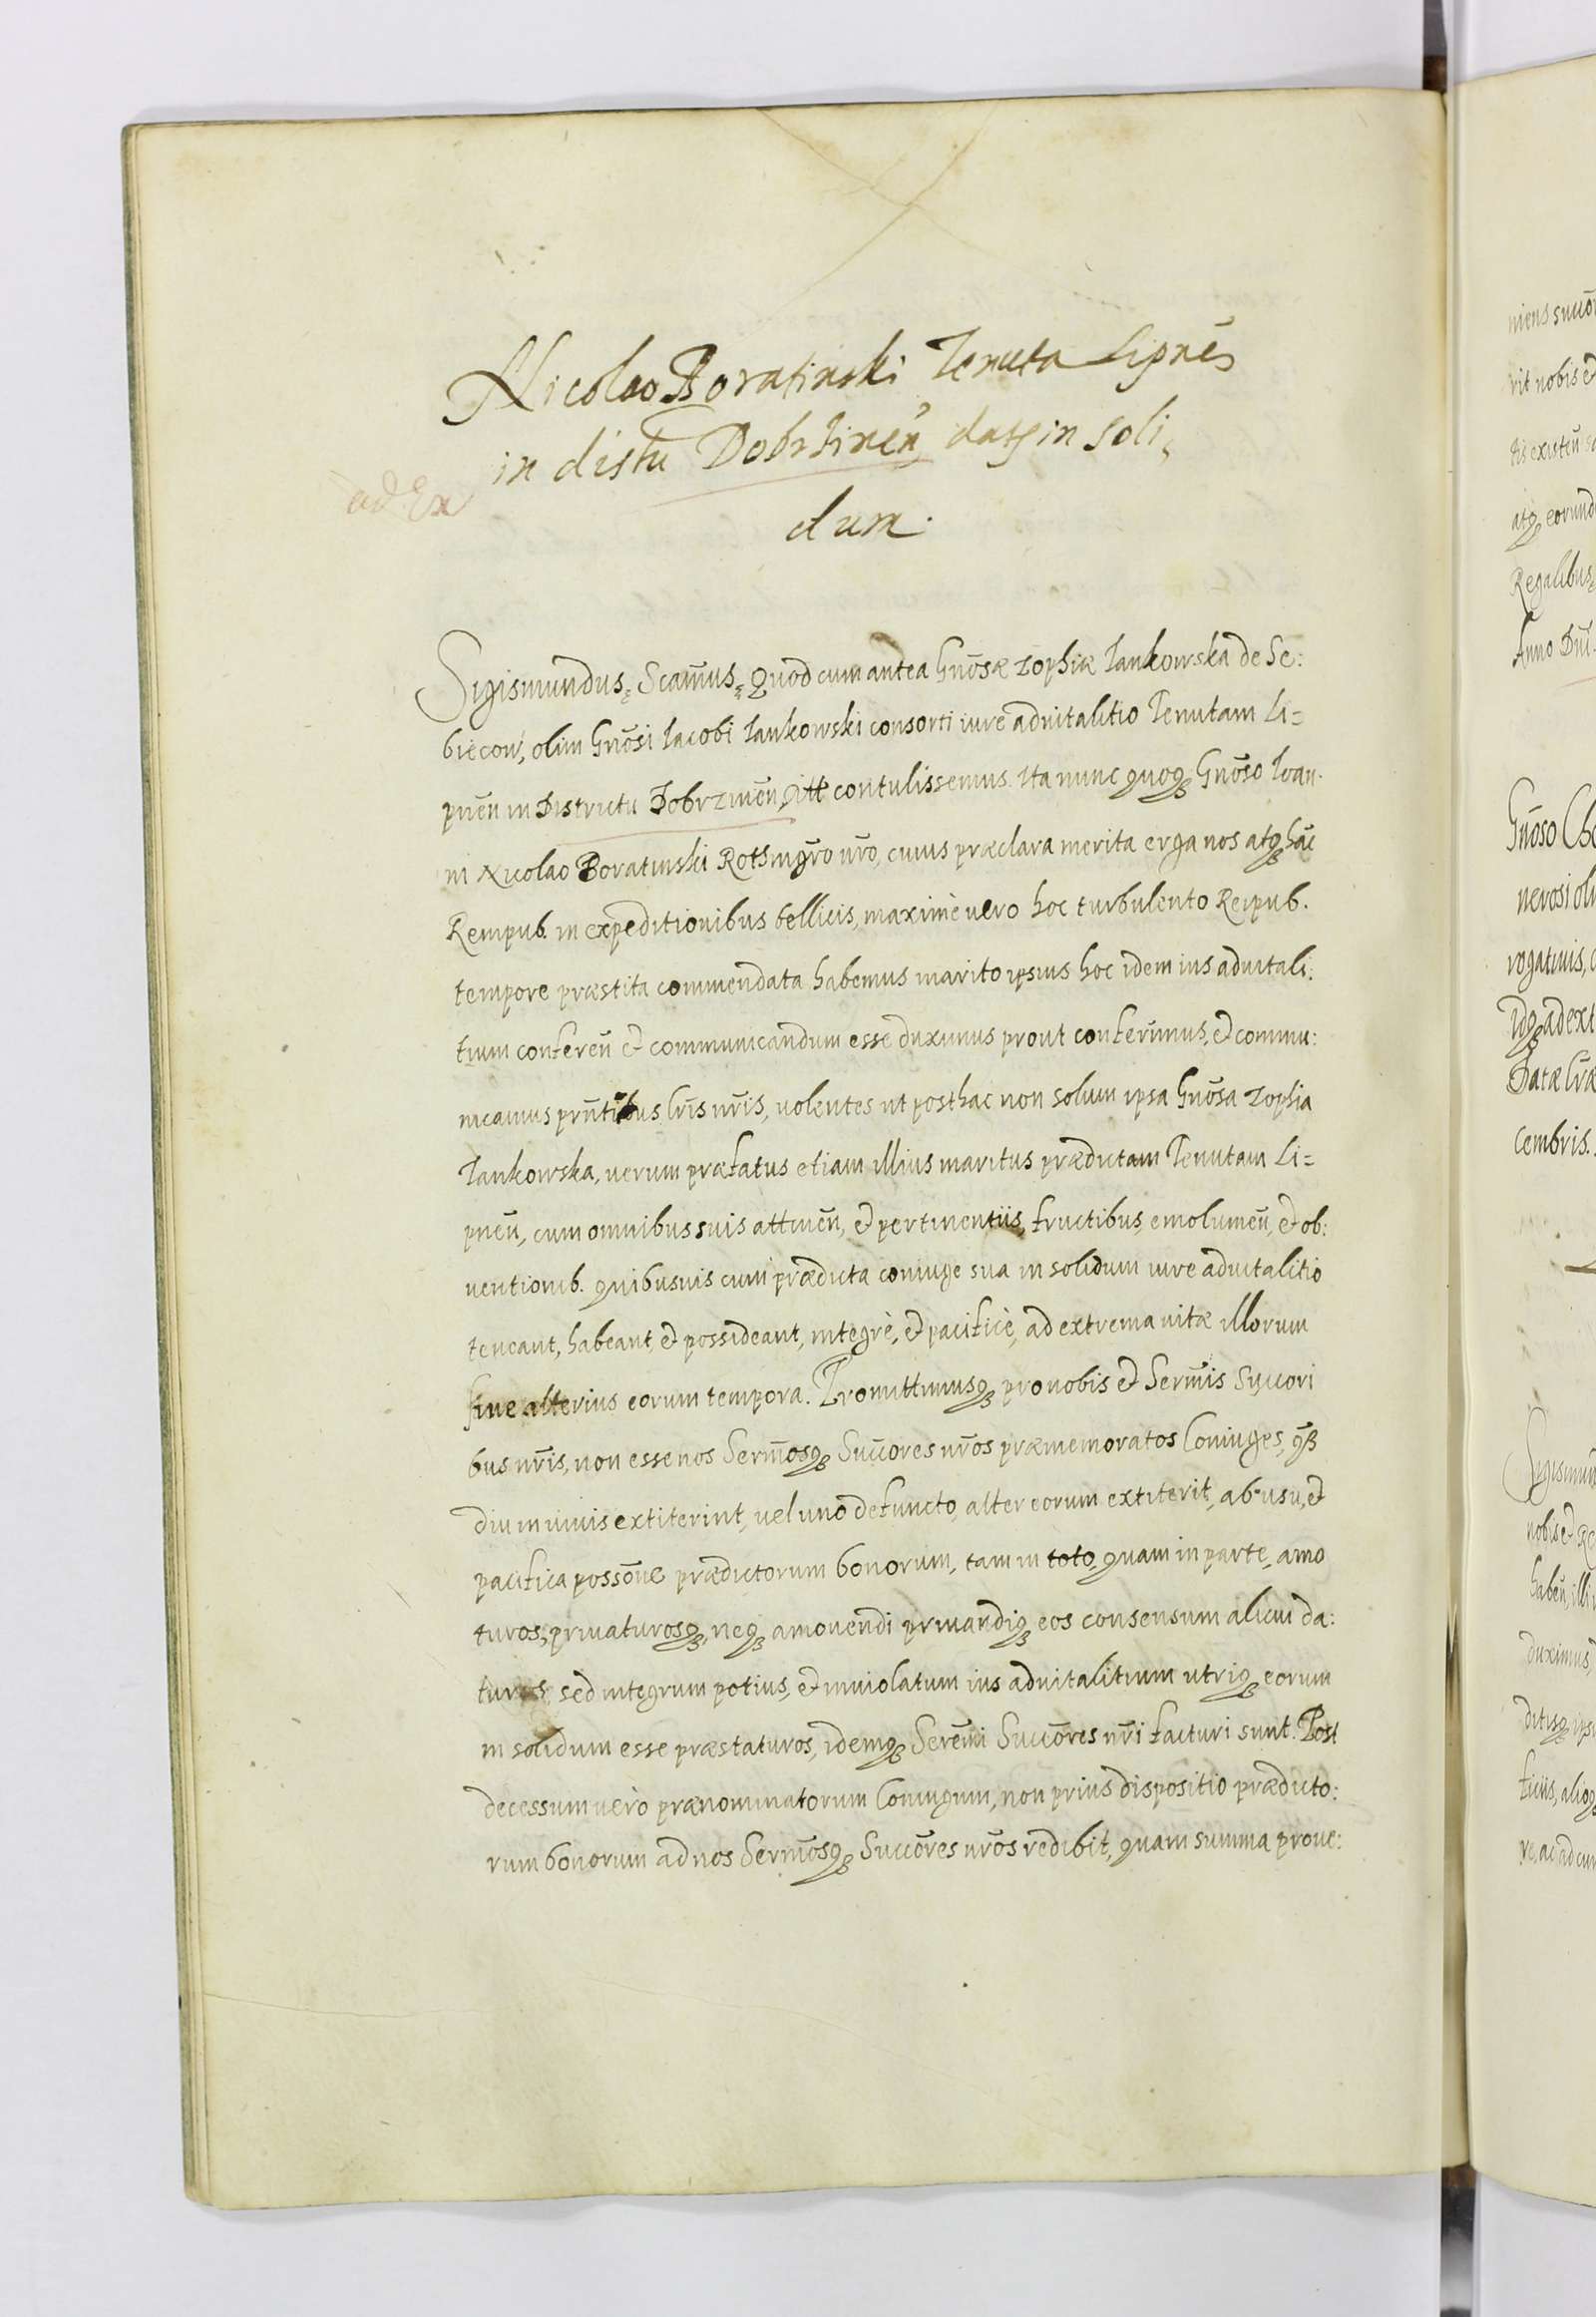 Nicolao Boratinski Tenuta Lipnen̄
in distu Dobrzinen̄ datʒ in soli,
ad Ex
dum.
Sigismundus, Scam̄us, Quod cum antea Gn̄osæ Zophiæ Iankowska de Se:
biecow, olim Gn̄osi Iacobi Iankowski consorti iure aduitalitio Tenutam Li=
pnen̄ in Districtu Dobrzinen̄, contulissemus. Ita nunc quoqʒ Gn̄oso Ioan.
ni Nicolao Boratinski Rotsmgr̄o nr̄o, cuius præclara merita erga nos atqʒ hāc
Rempub. in expeditionibus bellicis, maximè uero hoc turbulento Reipub.
tempore præstita commendata habemus marito ipsius hoc idem ius aduitali:
tium conferen̄ et communicandum esse duximus prout conferimus, et commu:
nicamus pn̄tibus lr̄is nr̄is, uolentes ut posthac non solum ipsa Gn̄osa Zophia
Iankowska, uerum præfatus etiam illius maritus prædictam Tenutam Li=
pnen̄, cum omnibus suis attinen̄, et pertinentiis, fructibus, emolumen̄, et ob:
uentionib. quibusuis cum prædicta coniuge sua in solidum iure aduitalitio
teneant, habeant, et possideant, integrè, et pacificè, ad extrema uitæ illorum
siue alterius eorum tempora. Promittimusqʒ pro nobis et Serm̄is Succori
bus nr̄is, non esse nos Serm̄osqʒ Succores nr̄os præmemoratos Coniuges, qʒ
diu in uiuis extiterint, uel uno defuncto, alter eorum extiterit, ab usu, et
pacifica posson̄e prædictorum bonorum, tam in toto, quam in parte, amo
turos, priuaturosqʒ, neqʒ amouendi priuandiqʒ eos consensum alicui da:
turos, sed integrum potius, et inuiolatum ius aduitalitium utriqʒ eorum
in solidum esse præstaturos, idemqʒ Serēmi Succōres nr̄i facturi sunt. Post
decessum uerò prænominatorum Coniugum, non prius dispositio prædicto:
rum bonorum ad nos Serm̄osqʒ Succōres nr̄os redibit, quam summa proue: